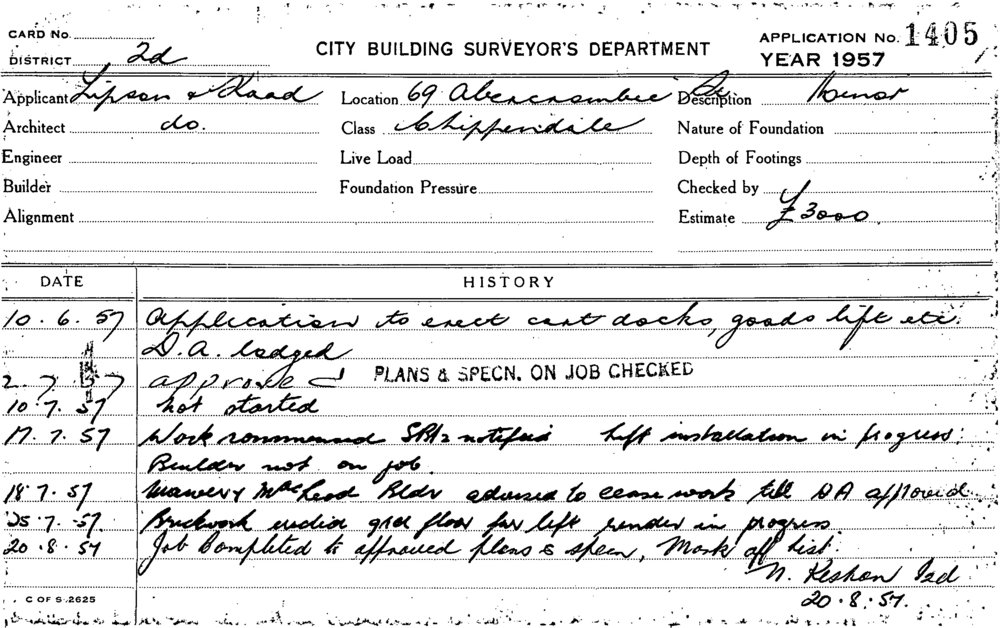 CARD No.
CITY BUILDING SURVEYOR'S DEPARTMENT
APPLICATION No. 1405
DISTRICT 2d
YEAR 1957
Applicant Lipson & Kaad Location 69 Abercrombie St Description Minor
Architect do. Class Chippendale Nature of Foundation
Engineer Live Load Depth of Footings
Builder Foundation Pressure Checked by
Alignment Estimate £3000
DATE HISTORY
10.6.57 Application to erect cart docks, goods lift etc.
D.A. lodged
2.7.57 approved PLANS & SPECN. ON JOB CHECKED
10.7.57 Not started
17.7.57 Work commenced notified Lift installation in progress.
Builder not on job.
18.7.57 MacLeod Bldr advised to cease work till DA approved
25.7.57. Brickwork grd floor for lift render in progress
20.8.57 Job Completed to approved plans & specn, Mark off list.
N.
20.8.57.
C OF S 2625